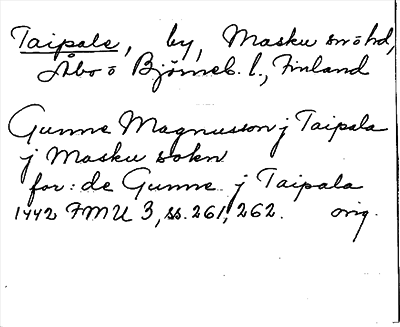 Taipale, by, Masku sn o hd,
Åbo o Björneb. l., Finland
Gunne Magnusson j Taipala
j Masku sokn
for: de Gunne j Taipala
1442 FMU 3, ss. 261, 262. orig.